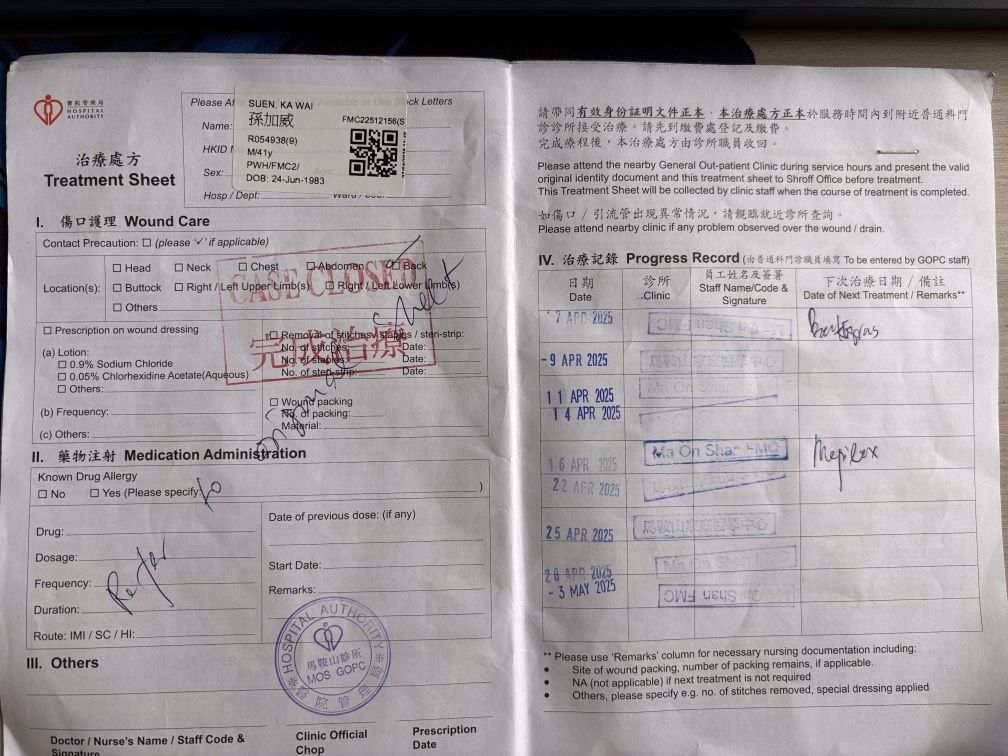 醫院管理局
HOSPITAL
AUTHORITY
治療處方
Treatment Sheet
Please Af Available or Use Block Letters
SUEN, KA WAI
孫加威
FMC22512156(S
R054938(9)
M/41y
PWH/FMC2/
DOB: 24-Jun-1983
Name:
HKID
Sex:
Hosp / Dept: Ward / Bed:
I. 傷口護理 Wound Care
Contact Precaution: ☐ (please '✓' if applicable)
Location(s):
☐ Head ☐ Neck ☐ Chest ☐ Abdomen ☐ Back
☐ Buttock ☐ Right / Left Upper Limb(s) ☐ Right / Left Lower Limb(s)
☐ Others
CASE CLOSED
完成治療
☐ Prescription on wound dressing
(a) Lotion:
☐ 0.9% Sodium Chloride
☐ 0.05% Chlorhexidine Acetate(Aqueous)
☐ Others:
(b) Frequency:
(c) Others:
☐ Removal of stitches / staples / steri-strip:
No. of stitches: Date:
No. of staples: Date:
No. of steri-strip: Date:
☐ Wound packing
No of packing:
Material:
II. 藥物注射 Medication Administration
Known Drug Allergy
☐ No ☐ Yes (Please specify: )
Drug:
Dosage:
Frequency:
Duration:
Route: IMI / SC / HI:
Date of previous dose: (if any)
Start Date:
Remarks:
Refer to
sheet
HOSPITAL AUTHORITY
馬鞍山診所
MOS GOPC
醫院管理局
III. Others
Doctor / Nurse's Name / Staff Code &
Signature
Clinic Official
Chop
Prescription
Date
請帶同有效身份証明文件正本、本治療處方正本於服務時間內到附近普通科門
診診所接受治療。請先到繳費處登記及繳費。
完成療程後，本治療處方由診所職員收回。
Please attend the nearby General Out-patient Clinic during service hours and present the valid
original identity document and this treatment sheet to Shroff Office before treatment.
This Treatment Sheet will be collected by clinic staff when the course of treatment is completed.
如傷口 / 引流管出現異常情況，請親臨就近診所查詢。
Please attend nearby clinic if any problem observed over the wound / drain.
IV. 治療記錄 Progress Record (由普通科門診職員填寫 To be entered by GOPC staff)
日期
Date
診所
Clinic
員工姓名及簽署
Staff Name/Code &
Signature
下次治療日期 / 備註
Date of Next Treatment / Remarks**
7 APR 2025 Ma On Shan FMC
- 9 APR 2025 馬鞍山家庭醫學中心
11 APR 2025 Ma On Shan
14 APR 2025
16 APR 2025 Ma On Shan FMC Mepilex
22 APR 2025
25 APR 2025 馬鞍山家庭醫學中心
28 APR 2025 Ma On Shan
- 3 MAY 2025 Ma On Shan FMC
** Please use 'Remarks' column for necessary nursing documentation including:
• Site of wound packing, number of packing remains, if applicable.
• NA (not applicable) if next treatment is not required
• Others, please specify e.g. no. of stitches removed, special dressing applied